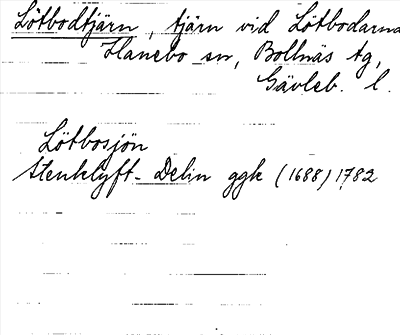 Lötbodtjärn, tjärn vid Lötbodarna
Hanebo sn, Bollnäs tg,
Gävleb. l.
Lötbosjön
Stenklyft - Delin ggk (1688) 1782